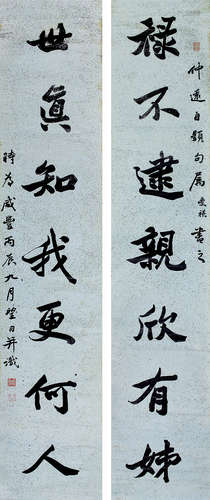 仲遠自題句屬
書之
祿不逮親欣有姊
世真知我更何人
時為咸豐丙辰九月望日并識